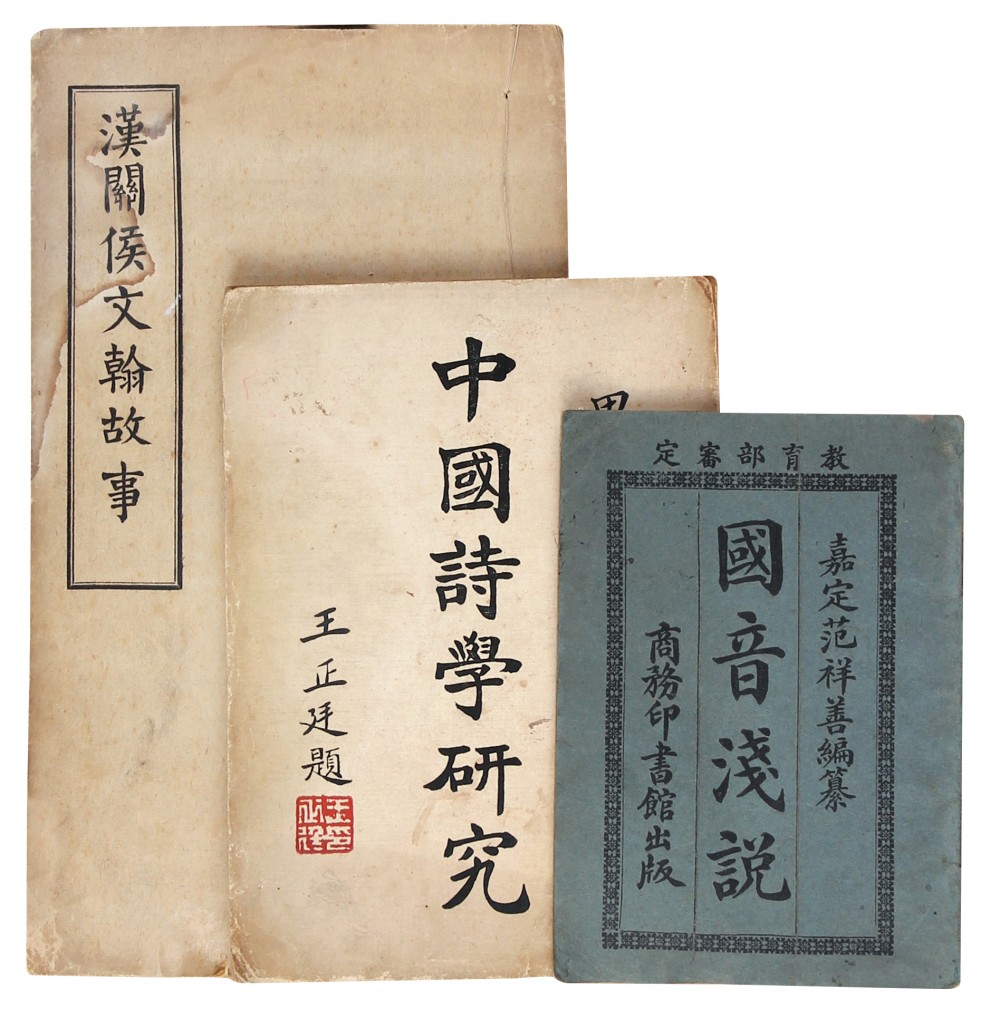 漢關侯文翰故事
中國詩學研究
王正廷題
教育部審定
嘉定范祥善編纂
國音淺説
商務印書館出版